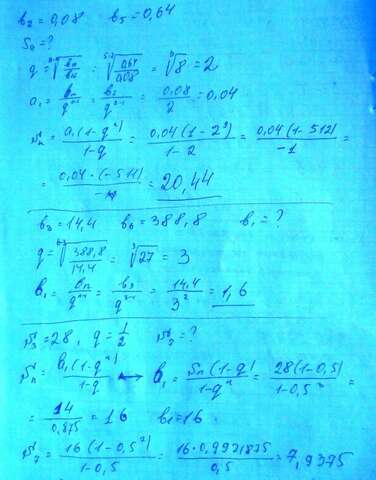 b₂=0,08 b₅=0,64
S₉=?
q=ⁿ⁻ᵏ√(bₙ/bₖ)=⁵⁻²√(0,64/0,08)=³√8=2
a₁=bₙ/qⁿ⁻¹=b₂/q²⁻¹=0,08/2=0,04
Sₙ=a₁(1-qⁿ)/(1-q)=0,04(1-2⁹)/(1-2)=0,04(1-512)/-1=
=0,04·(-511)/-1=20,44
b₃=14,4 b₆=388,8 b₁=?
q=⁶⁻³√(388,8/14,4)=³√27=3
b₁=bₙ/qⁿ⁻¹=b₃/q³⁻¹=14,4/3²=1,6
S₃=28, q=1/2 S₇=?
Sₙ=b₁(1-qⁿ)/(1-q) ↔ b₁=Sₙ(1-q)/(1-qⁿ)=28(1-0,5)/(1-0,5³)=
=14/0,875=16 b₁=16
S₇=16(1-0,5⁷)/(1-0,5)=16·0,9921875/0,5=7,9375